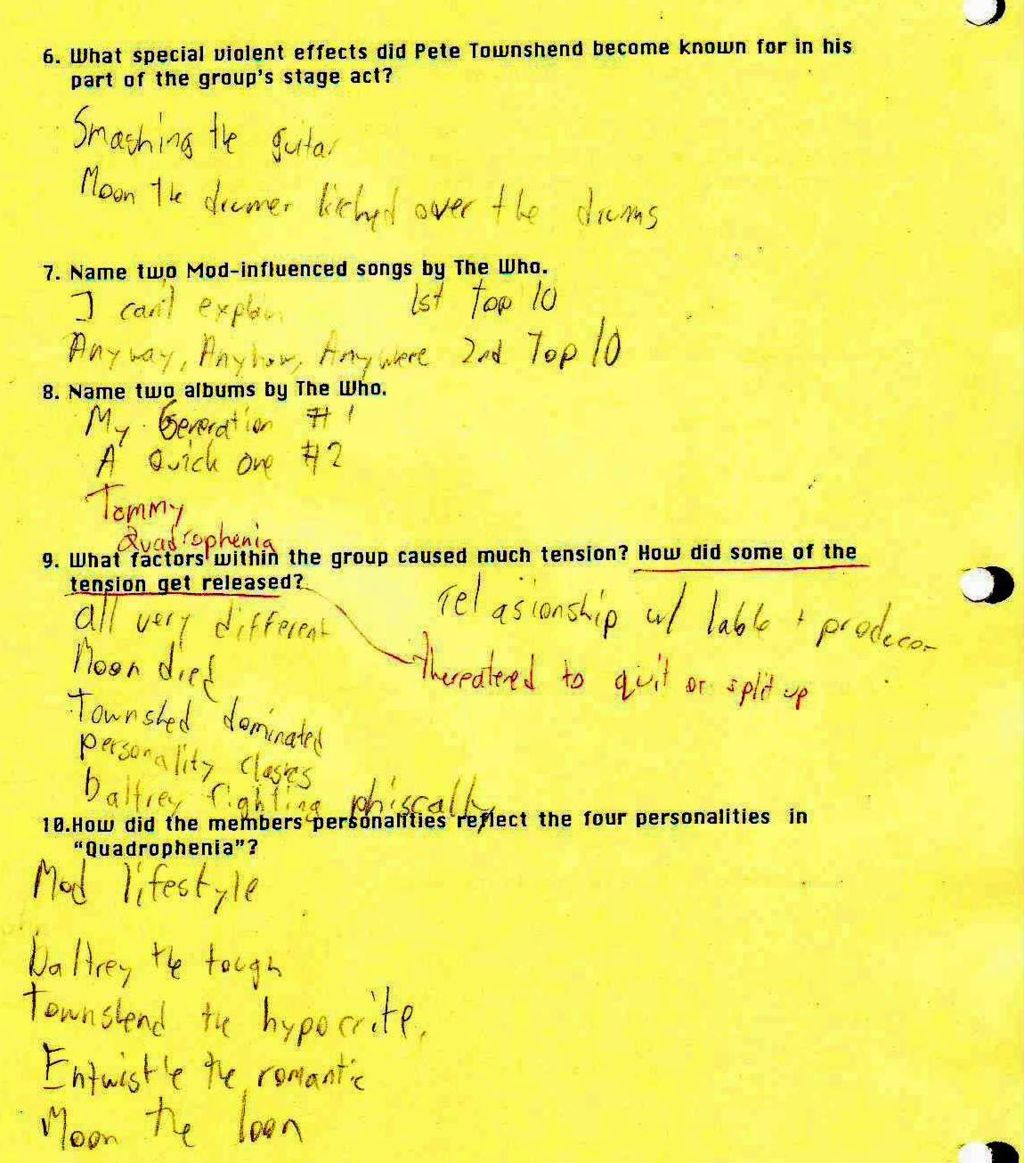 6. What special violent effects did Pete Townshend become known for in his
part of the group's stage act?
Smashing the guitar
Moon the drumer kicked over the drums
7. Name two Mod-influenced songs by The Who.
I can't explain 1st Top 10
Anyway, Anyhow, Anywere 2nd Top 10
8. Name two albums by The Who.
My Generation #1
A Quick One #2
Tommy
Quadrophenia
9. What factors within the group caused much tension? How did some of the
tension get released?
all very different relasionship w/ lable + producor
Moon died
Threatered to quit or split up
Townshed dominated
personality clases
Daltrey fighting phiscally
10.How did the members personalities reflect the four personalities in
"Quadrophenia"?
Mod lifestyle
Daltrey the tough
Townshend the hypocrite,
Entwistle the romantic
Moon the loon